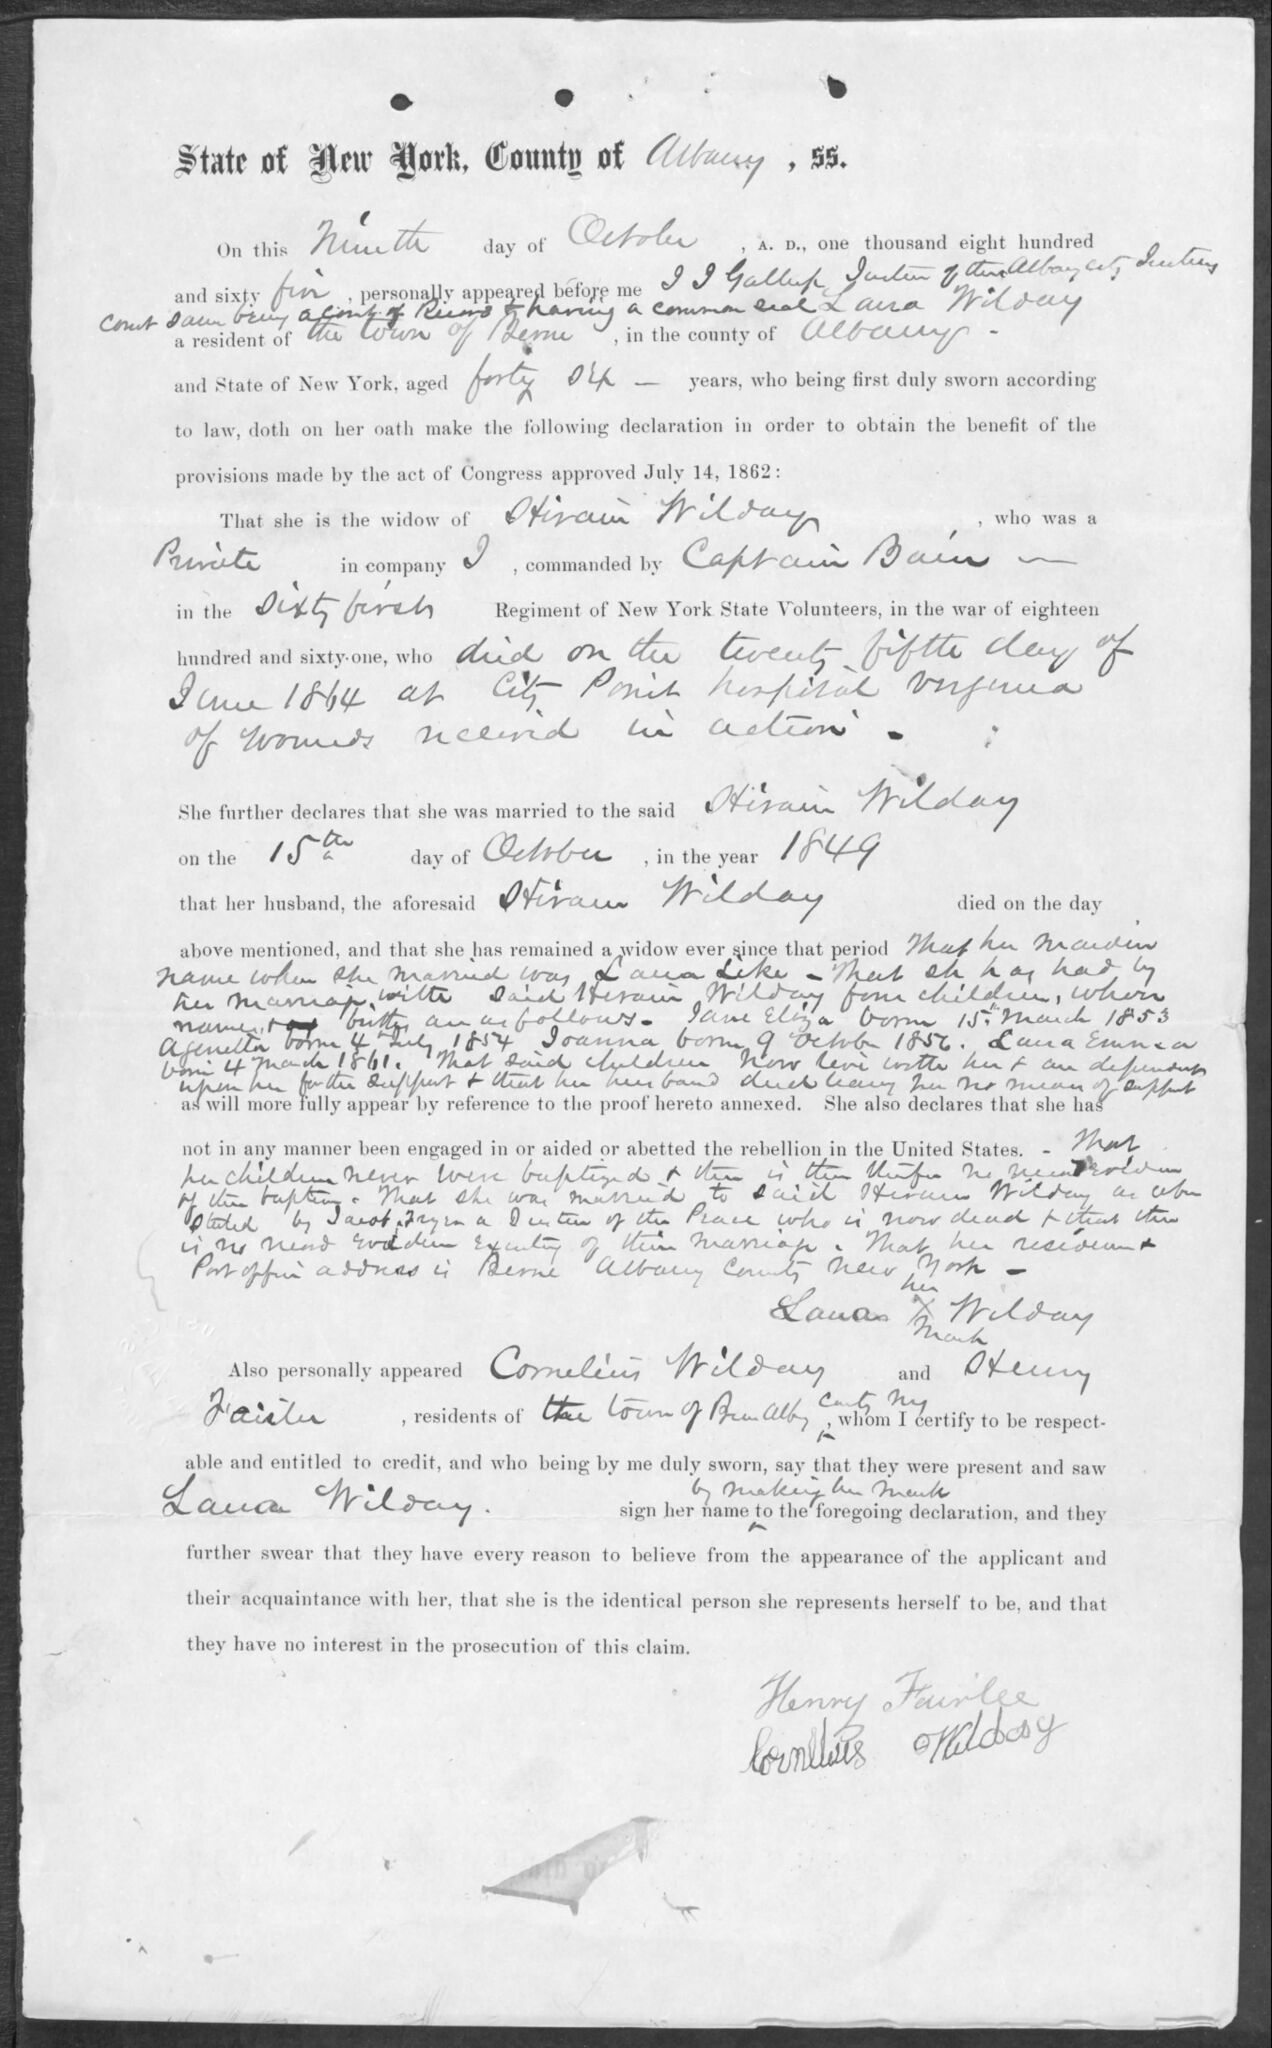 State of New York, County of Albany, ss.
On this Ninth day of October, A. D., one thousand eight hundred
and sixty five, personally appeared before me I J Gallup Justice of the Albany City Justices
Court same being a Court of Record & having a common seal Lana Wilday
a resident of the town of Berne, in the county of Albany -
and State of New York, aged forty six — years, who being first duly sworn according
to law, doth on her oath make the following declaration in order to obtain the benefit of the
provisions made by the act of Congress approved July 14, 1862:
That she is the widow of Hiram Wilday, who was a
Private in company I, commanded by Captain Bain —
in the Sixty first Regiment of New York State Volunteers, in the war of eighteen
hundred and sixty-one, who died on the twenty fifth day of
June 1864 at City Point hospital Virginia
of wounds received in action -
She further declares that she was married to the said Hiram Wilday
on the 15th day of October, in the year 1849
that her husband, the aforesaid Hiram Wilday died on the day
above mentioned, and that she has remained a widow ever since that period That her maiden
name when she married was Lana Like - That she has had by
her marriage with said Hiram Wilday four children, whose
names & births are as follows - Jane Eliza born 15th March 1853
Agenetta born 4th July 1854 Joanna born 9 October 1856. Lana Emma
born 4 March 1861. That said children now live with her & are dependent
upon her for their support & that her husband died leaving her no means of support
as will more fully appear by reference to the proof hereto annexed. She also declares that she has
not in any manner been engaged in or aided or abetted the rebellion in the United States. - That
her children never were baptized & there is therefore no record evidence
of their baptism. That she was married to said Hiram Wilday as above
stated by Jacob Fryer a Justice of the Peace who is now dead & that there
is no record evidence existing of their marriage. That her residence &
Post office address is Berne Albany County New York -
her
Lana X Wilday
Mark
Also personally appeared Cornelius Wilday and Henry
Fairlee, residents of the town of Berne Alby County NY, whom I certify to be respect-
able and entitled to credit, and who being by me duly sworn, say that they were present and saw
by making her mark
Lana Wilday. sign her name to the foregoing declaration, and they
further swear that they have every reason to believe from the appearance of the applicant and
their acquaintance with her, that she is the identical person she represents herself to be, and that
they have no interest in the prosecution of this claim.
Henry Fairlee
Cornelius Wilday